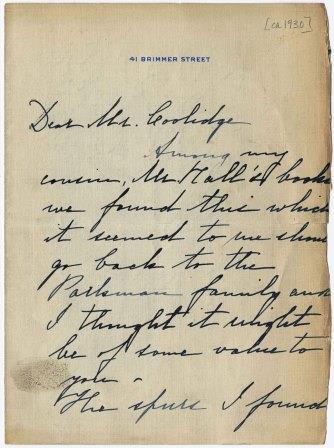 [ca 1930]
41 BRIMMER STREET
Dear Mr. Coolidge
Among my
cousin, Mr Hall's books
we found this which
it seemed to me shou
go back to the
Parkman family and
I thought it might
be of some value to
you -
The spurs I found